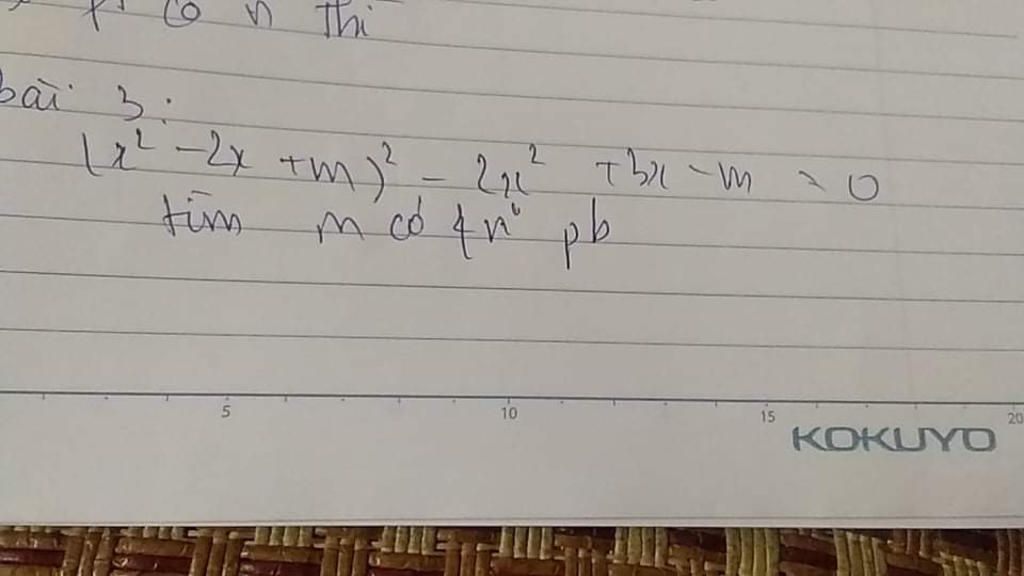 pt có n thì
bài 3:
(x² - 2x + m)² - 2x² + 3x - m = 0
tìm m có 4 nº pb
5 10 15 20
KOKUYO